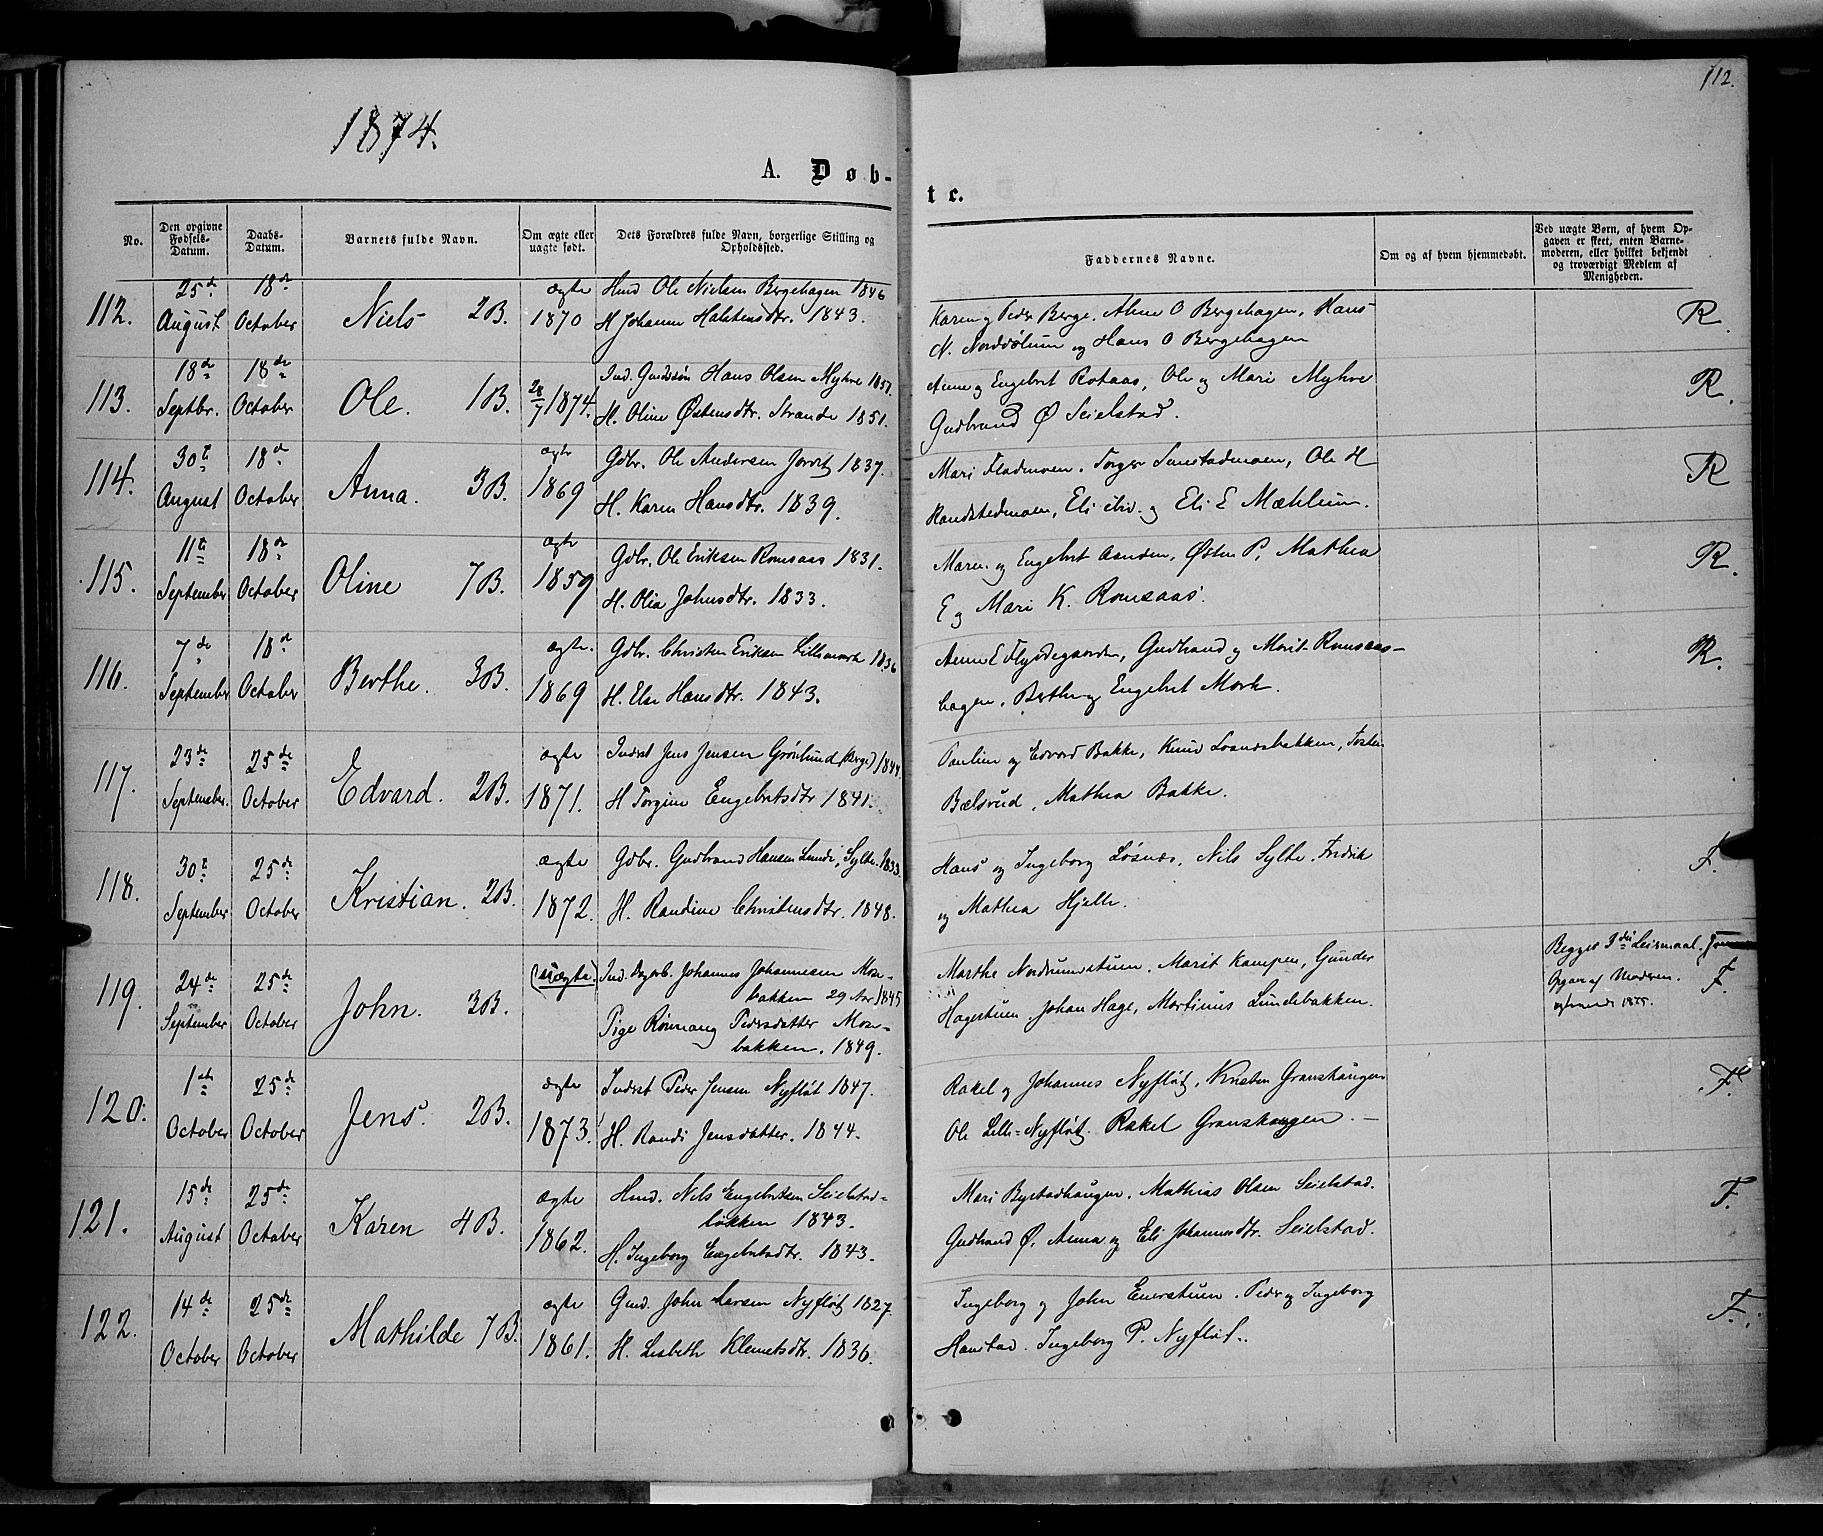 112.
1874.
A. Døb-
te.
No.
Den opgivne Fødsels-Datum.
Daabs-Datum.
Barnets fulde Navn.
Om ægte eller uagte født.
Dets Forældres fulde Navn, borgerlige Stilling og Opholdssted.
Faddernes Navne.
Om og af hvem hjemmedøbt.
Ved uægte Børn, af hvem Opgaven er skeet, enten Barnemoderen, eller hvilket bekjendt og troværdigt Medlem af Menigheden.
112. 25de August 18de October Niels 2B. ægte 1870
Hmd Ole Nielsen Bergehagen 1846
H Johanne Halstensdtr. 1843.
Karen og Peder Berge, Anne O Bergehagen, Hans
N. og Hans O Bergehagen
R.
113. 18de Septbr. 18de October Ole. 1B. 28/7 1874.
Ind. Hans Olsen Myhre
H. Oline Østensdtr. Strande 1851.
Anne og Engebret Rotaas, Ole og Mari Myhre
Gudbrand Ø Seielstad.
R.
114. 30te August 18de October Anna. 3B. ægte 1869
Gdbr. Ole Andersen 1837.
H. Karen Hansdtr. 1839.
Mari Fladmoen. Torger Ole H
Eli ibid. og Eli E Mæhlum.
R
115. 11te September 18de October Oline 7B. ægte 1859
Gdbr. Ole Eriksen Romsaas 1831.
H. Olia Johnsdtr. 1833.
Maren og Engebret Aanden, Østen P, Mathea
E og Mari K. Romsaas.
R.
116. 7de September 18de October Berthe. 3B. ægte. 1869
Gdbr. Christen Eriksen 1836
H. Else Hansdtr. 1843.
Anne E Gudbrand og Marit Romsaas-
hagen. Berthe og Engebret Mork.
R.
117. 23de September. 25de October Edvard. 2B. ægte 1871.
Inderst Jens Jensen Grønlund (Berge) 1844.
H Torgine Engebretsdtr 1841.
Pauline og Edvard Bakke, Knud
Bælsrud, Mathea Bakke.
118. 30te September 25de October Kristian. 2B. ægte 1872.
Gdbr. Gudbrand Hansen Lunde, Sylte. 1833.
H. Randine Christensdtr. 1848.
Hans og Ingeborg Løsnæs, Nils Sylte. Fredrik
og Mathea Hjelle.
F.
119. 24de September 25de October John. 3B. (uægte)
Ind. Johannes Johannesen Moe-
bakken 29 Aar 1845
Pige Rønnaug Pedersdatter Moe-
bakken. 1849.
Marthe Nordrumstuen. Marit Kampen, Gunder
Hagestuen Johan Hage, Martinus Lundebakken.
Begges 3die Leiermaal.
Opgav af Moderen.
F.
120. 1ste October 25de October Jens. 2B. ægte 1873.
Inderst Peder Jensen Nyfløt 1847.
H. Randi Jensdatter. 1844.
Rakel og Johannes Nyfløt, Kristen Granshaugen
Ole Lille-Nyfløt. Rakel Granshaugen. —
F.
121. 15de August 25de October Karen 4B. ægte 1862.
Hmd. Nils Engebretsen Seielstad-
løkken 1843.
H. Ingeborg Engebretsdtr. 1843.
Mari Bystadhaugen. Mathias Olsen Seielstad.
Gudbrand Ø, Anna og Eli Johannesdtr. Seielstad.
F.
122. 14de October 25de October Mathilde 7B. ægte 1861.
Gmd. John Larsen Nyfløt 1827.
H. Lisbeth Klemetsdtr. 1836.
Ingeborg og John Enerstuen. Peder og Ingeborg
Hanstad. Ingeborg P. Nyfløt.
F.